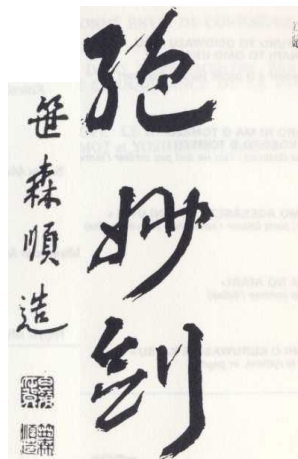 絶妙剣
笹森順造